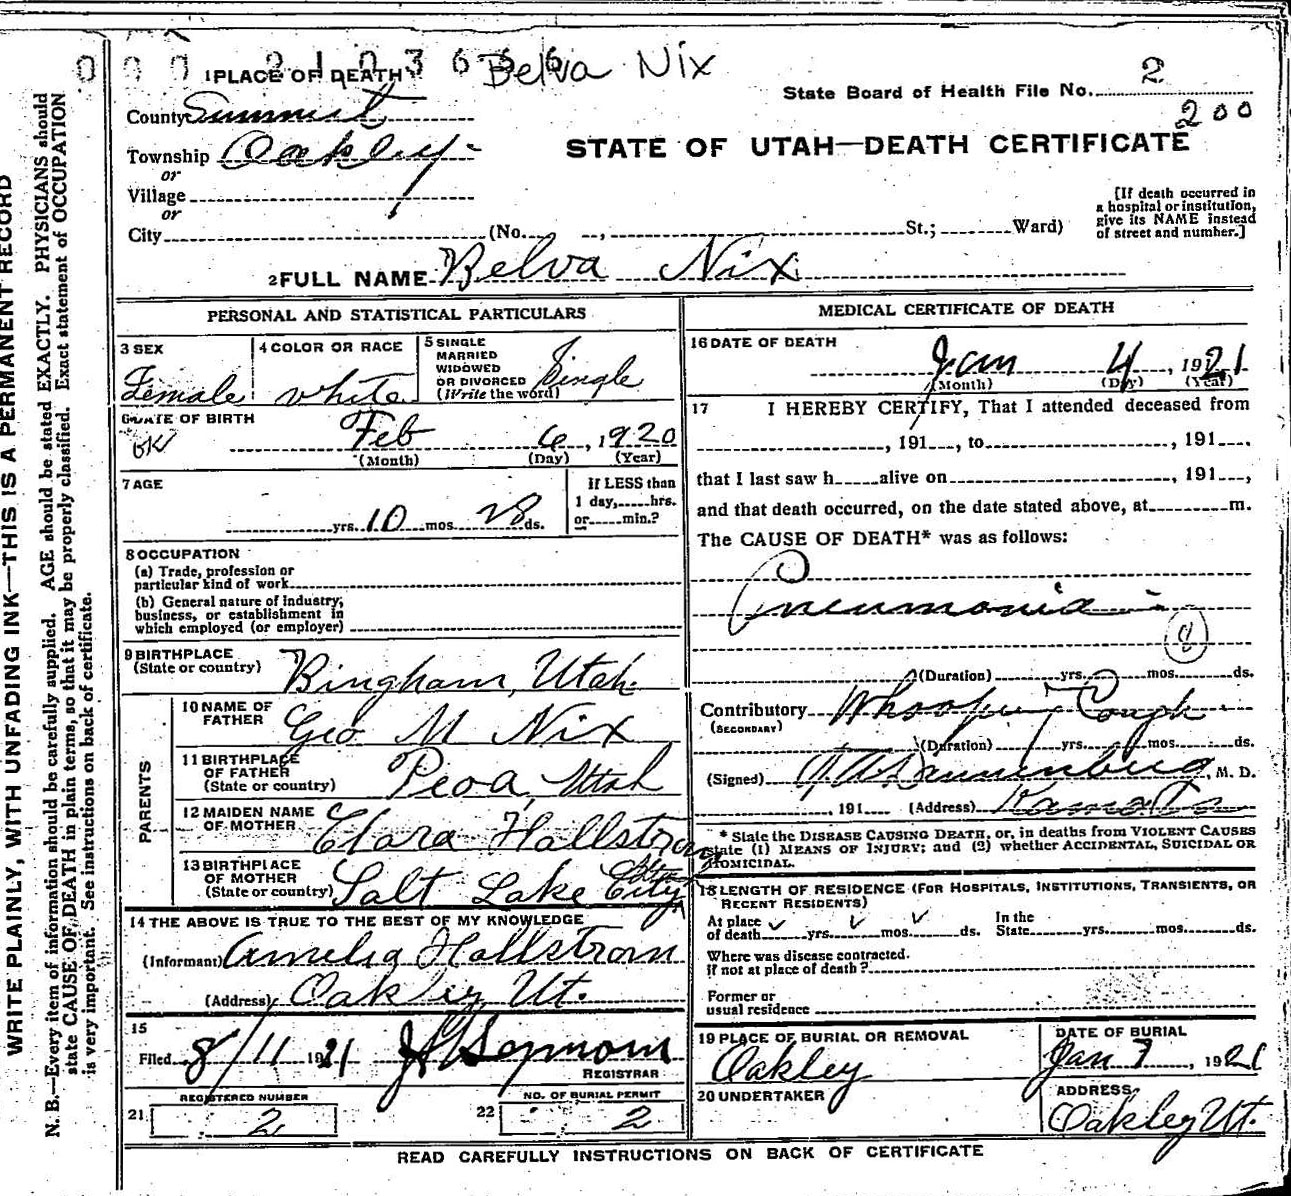 0 0 0 2 1 0 3 6 5 6
Belva Nix
1 PLACE OF DEATH
State Board of Health File No. 2
200
County Summit
STATE OF UTAH—DEATH CERTIFICATE
Township Oakley
or
Village
or
City (No. , St.; Ward)
[If death occurred in
a hospital or institution,
give its NAME instead
of street and number.]
2 FULL NAME Belva Nix
PERSONAL AND STATISTICAL PARTICULARS
3 SEX
Female
4 COLOR OR RACE
White
5 SINGLE
MARRIED
WIDOWED
OR DIVORCED
(Write the word)
Single
6 DATE OF BIRTH
OK
Feb 6, 1920
(Month) (Day) (Year)
7 AGE
yrs. 10 mos. 28 ds.
If LESS than
1 day, hrs.
or min.?
8 OCCUPATION
(a) Trade, profession or
particular kind of work
(b) General nature of industry,
business, or establishment in
which employed (or employer)
9 BIRTHPLACE
(State or country) Bingham, Utah.
PARENTS
10 NAME OF
FATHER Geo M Nix
11 BIRTHPLACE
OF FATHER
(State or country) Peoa, Utah
12 MAIDEN NAME
OF MOTHER Clara Hallstrom
13 BIRTHPLACE
OF MOTHER
(State or country) Salt Lake City
14 THE ABOVE IS TRUE TO THE BEST OF MY KNOWLEDGE
(Informant) Amelia Hallstrom
(Address) Oakley Ut.
15
Filed 8/11 1921
REGISTRAR
REGISTERED NUMBER
21 2
NO. OF BURIAL PERMIT
22 2
MEDICAL CERTIFICATE OF DEATH
16 DATE OF DEATH
Jan 4, 1921
(Month) (Day) (Year)
17 I HEREBY CERTIFY, That I attended deceased from
, 191 , to , 191 .
that I last saw h alive on , 191 ,
and that death occurred, on the date stated above, at m.
The CAUSE OF DEATH* was as follows:
Pneumonia
(Duration) yrs. mos. ds.
Contributory Whooping Cough
(SECONDARY)
(Duration) yrs. mos. ds.
(Signed) , M. D.
191 (Address) Kamas
* State the DISEASE CAUSING DEATH, or, in deaths from VIOLENT CAUSES
state (1) MEANS OF INJURY; and (2) whether ACCIDENTAL, SUICIDAL OR
HOMICIDAL.
18 LENGTH OF RESIDENCE (FOR HOSPITALS, INSTITUTIONS, TRANSIENTS, OR
RECENT RESIDENTS)
At place
of death yrs. mos. ds.
In the
State yrs. mos. ds.
Where was disease contracted.
If not at place of death?
Former or
usual residence
19 PLACE OF BURIAL OR REMOVAL
Oakley
DATE OF BURIAL
Jan 7, 1921
20 UNDERTAKER
ADDRESS
Oakley Ut.
READ CAREFULLY INSTRUCTIONS ON BACK OF CERTIFICATE
WRITE PLAINLY, WITH UNFADING INK—THIS IS A PERMANENT RECORD
N. B.—Every item of information should be carefully supplied. AGE should be stated EXACTLY. PHYSICIANS should
state CAUSE OF DEATH in plain terms, so that it may be properly classified. Exact statement of OCCUPATION
is very important. See instructions on back of certificate.